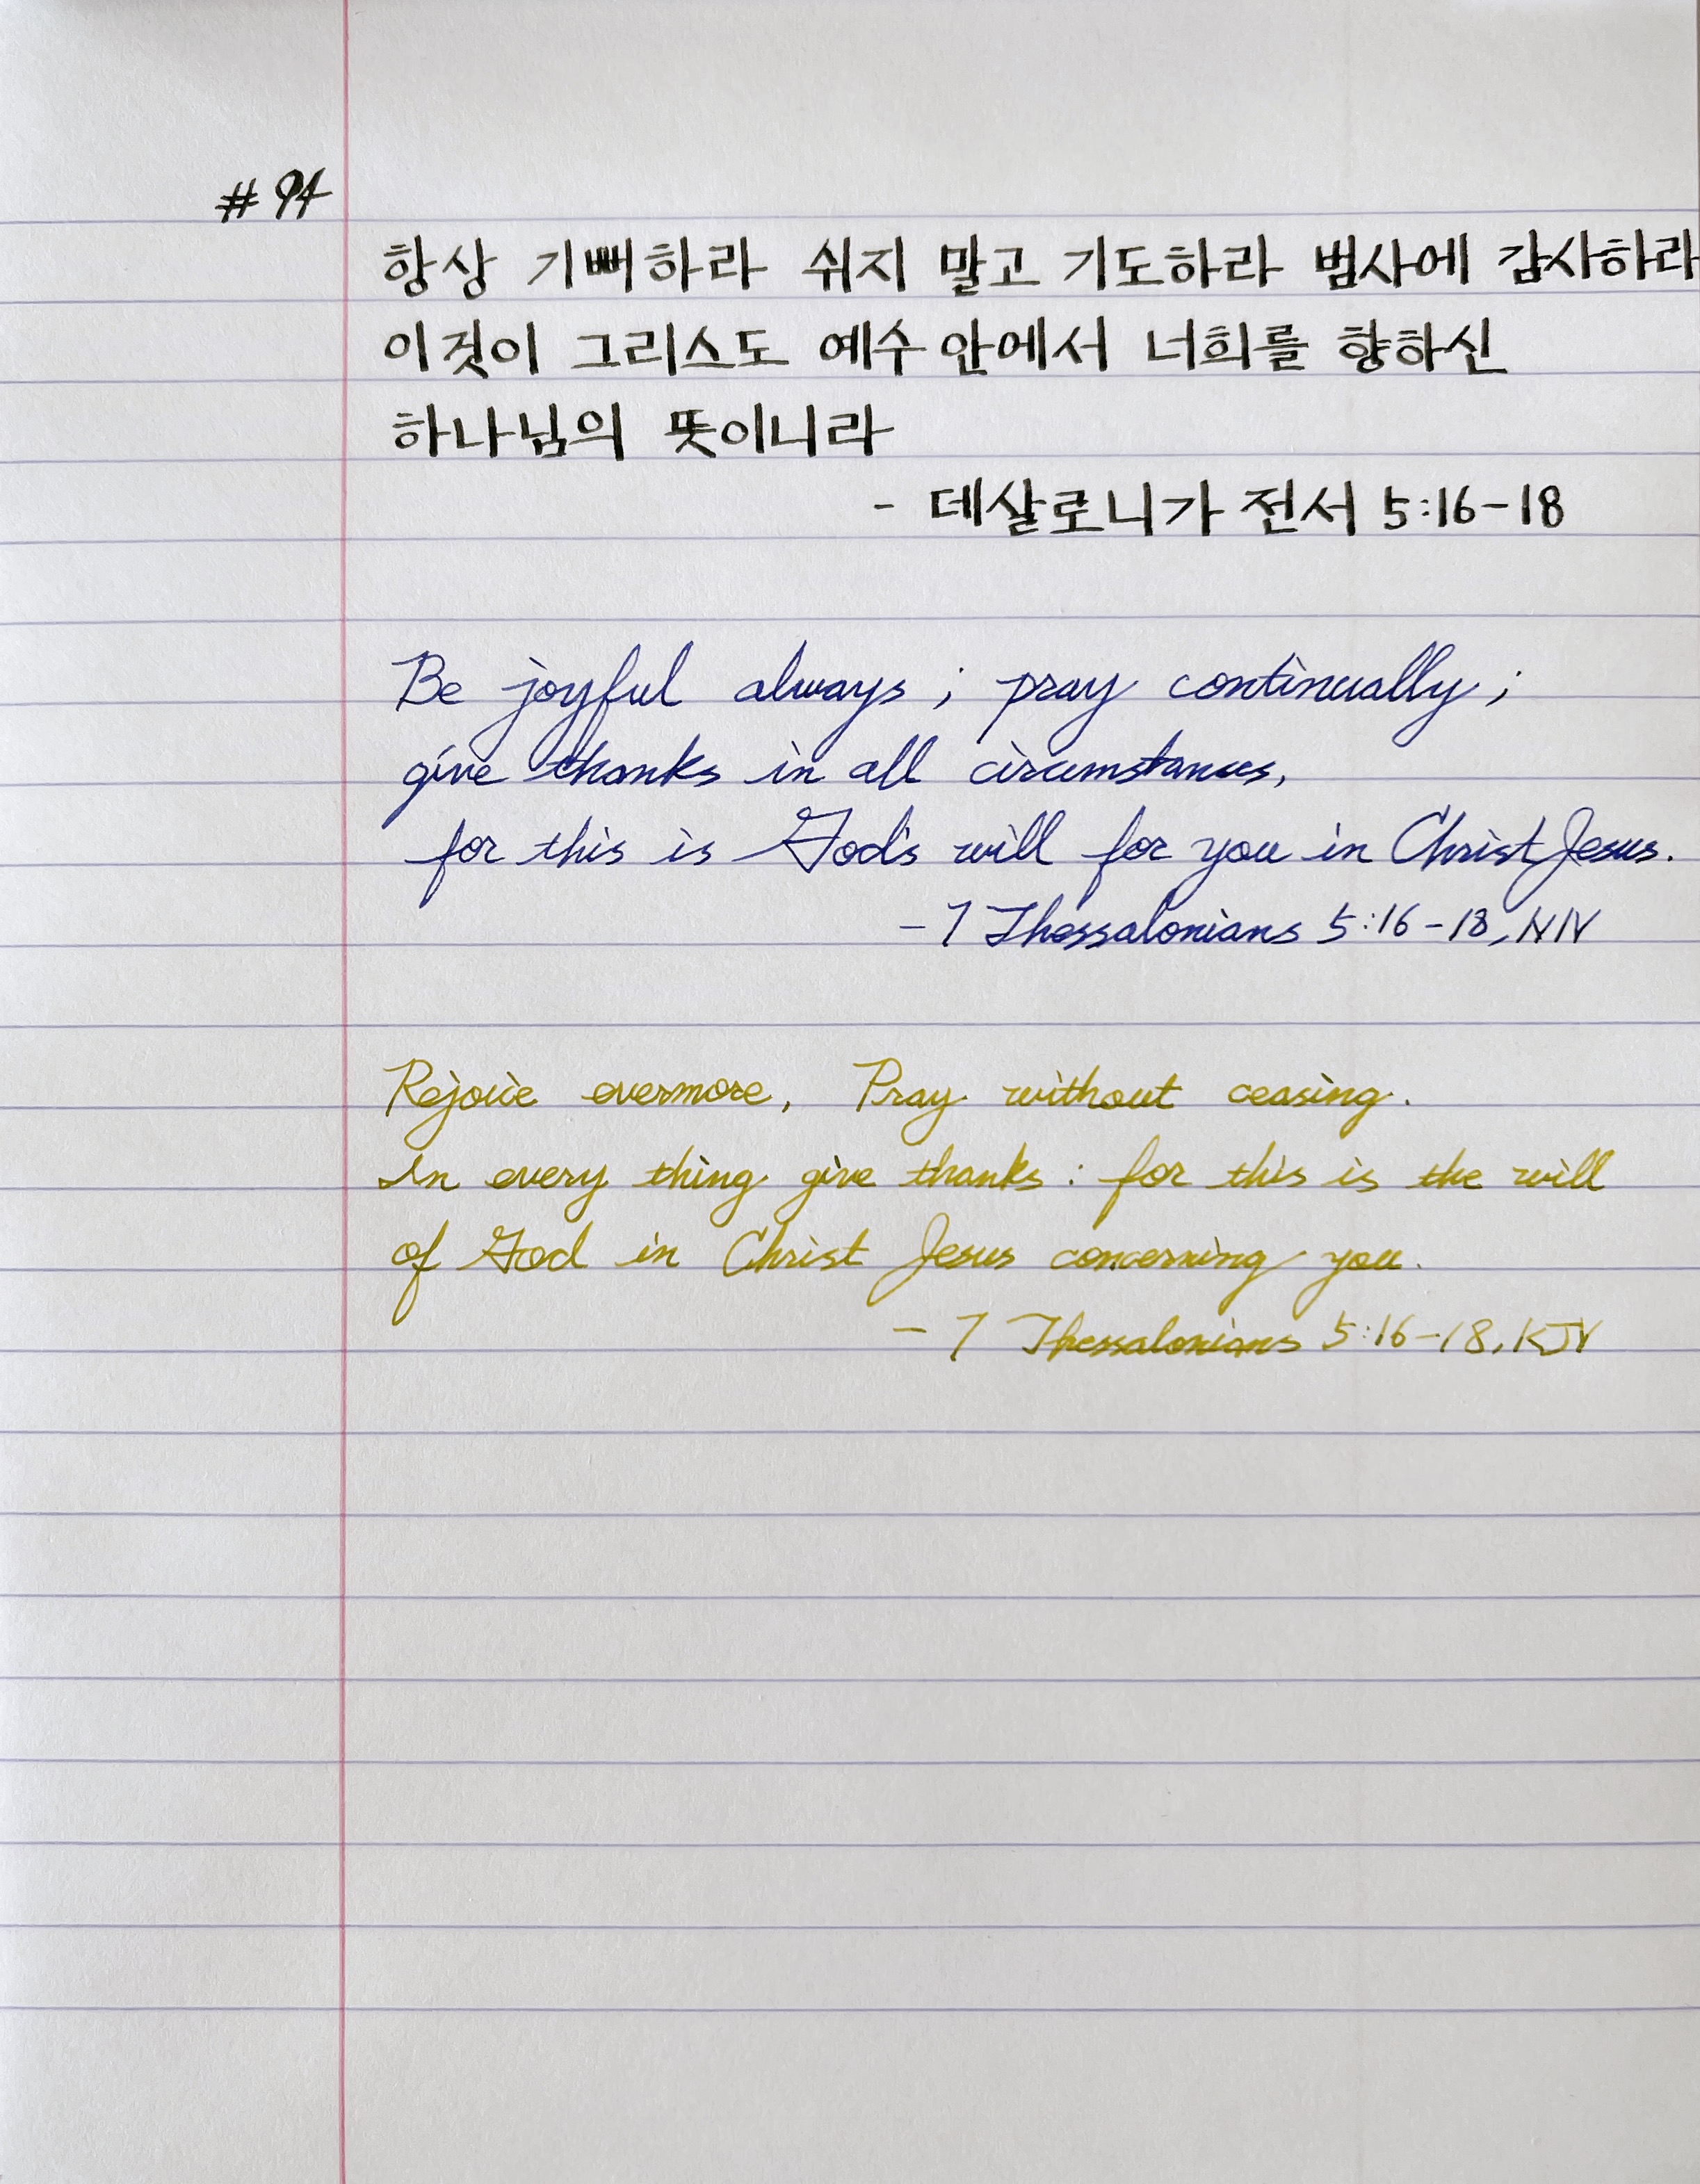 #94
항상 기뻐하라 쉬지 말고 기도하라 범사에 감사하라
이것이 그리스도 예수 안에서 너희를 향하신
하나님의 뜻이니라
- 데살로니가 전서 5:16-18
Be joyful always; pray continually;
give thanks in all circumstances,
for this is God's will for you in Christ Jesus.
- 1 Thessalonians 5:16-18, NIV
Rejoice evermore, Pray without ceasing.
In every thing give thanks: for this is the will
of God in Christ Jesus concerning you.
- 1 Thessalonians 5:16-18, KJV